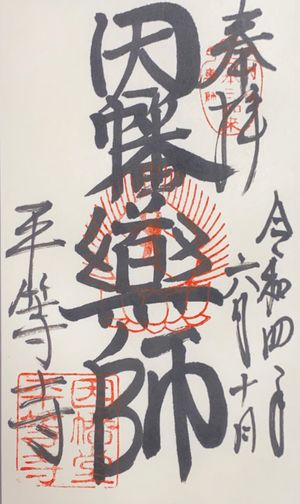 奉拝
令和四年
六月十日
因幡薬師
平等寺
因幡堂
平等寺